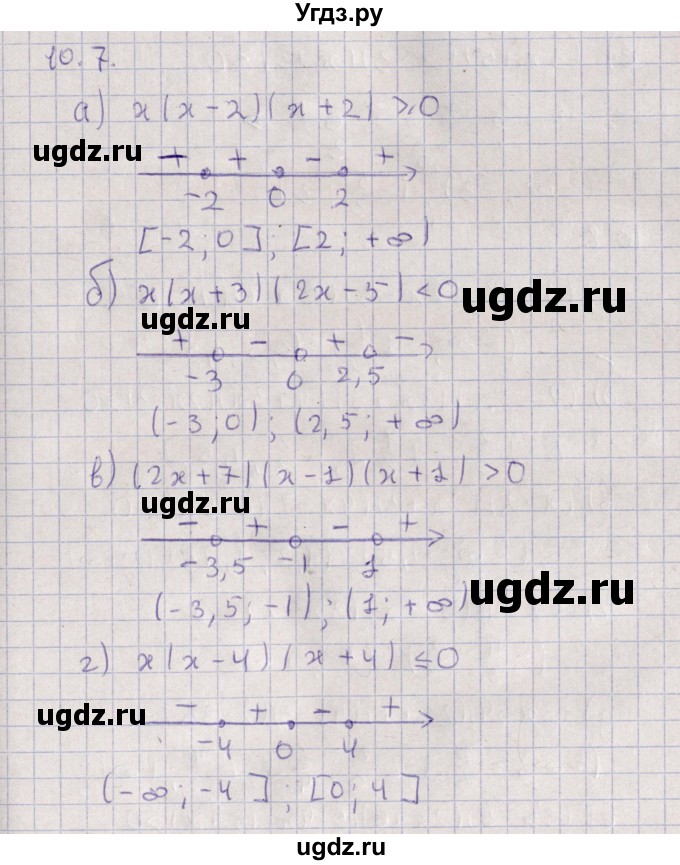 Угдз.ру
10.7.
а) x(x-2)(x+2)⩾0
ugdz.ru
+ + - +
-2 0 2
[-2; 0]; [2; +∞)
б) x(x+3)(2x-5)<0
ugdz.ru
ugdz.ru
+ - + -
-3 0 2,5
(-3; 0); (2,5; +∞)
в) (2x+7)(x-1)(x+1)>0
ugdz.ru
- + - +
-3,5 -1 1
ugdz.ru
(-3,5; -1); (1; +∞)
г) x(x-4)(x+4)≤0
ugdz.ru
- + - +
-4 0 4
(-∞; -4]; [0; 4]
ugdz.ru